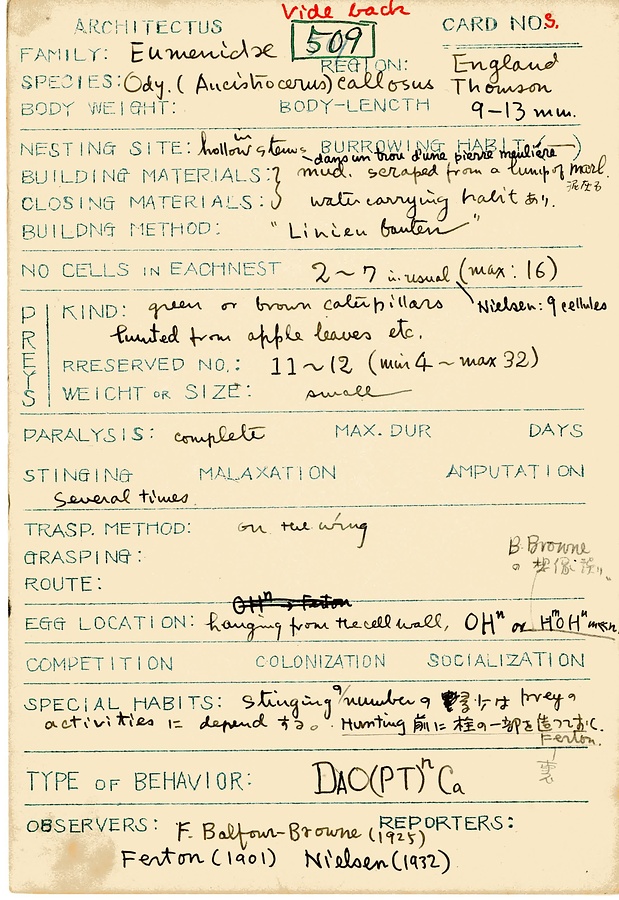 Vide back
ARCHITECTUS
509
CARD NO.S.
FAMILY: Eumenidae
REGION: England
SPECIES: Ody. (Ancistrocerus) callosus Thomson
BODY WEIGHT: BODY-LENGTH 9-13 mm.
NESTING SITE: in hollow stems BURROWING HABIT (—)
dans un trou d'une pierre meulière
BUILDING MATERIALS: mud. scraped from a lump of marl.
CLOSING MATERIALS: water carrying habit あり.
BUILDNG METHOD: "Linien bauten"
NO CELLS IN EACHNEST 2~7 in usual (max: 16)
Nielsen: 9 cellules
PREYS
KIND: green or brown caterpillars
hunted from apple leaves etc.
RRESERVED NO.: 11~12 (min 4 ~ max 32)
WEIGHT OR SIZE: small
PARALYSIS: complete MAX. DUR DAYS
STINGING MALAXATION AMPUTATION
Several times
TRASP. METHOD: on the wing
GRASPING:
B. Browne
ROUTE:
EGG LOCATION: hanging from the cell wall, OHⁿ or HᵐOHⁿ
COMPETITION COLONIZATION SOCIALIZATION
SPECIAL HABITS: Stinging の number の は prey の
activities に depend する。 Hunting 前に 栓の一部を造っておく.
Ferton.
TYPE OF BEHAVIOR: DAO(PT)ⁿCa
OBSERVERS: F. Balfour-Browne (1925) REPORTERS:
Ferton (1901) Nielsen (1932)